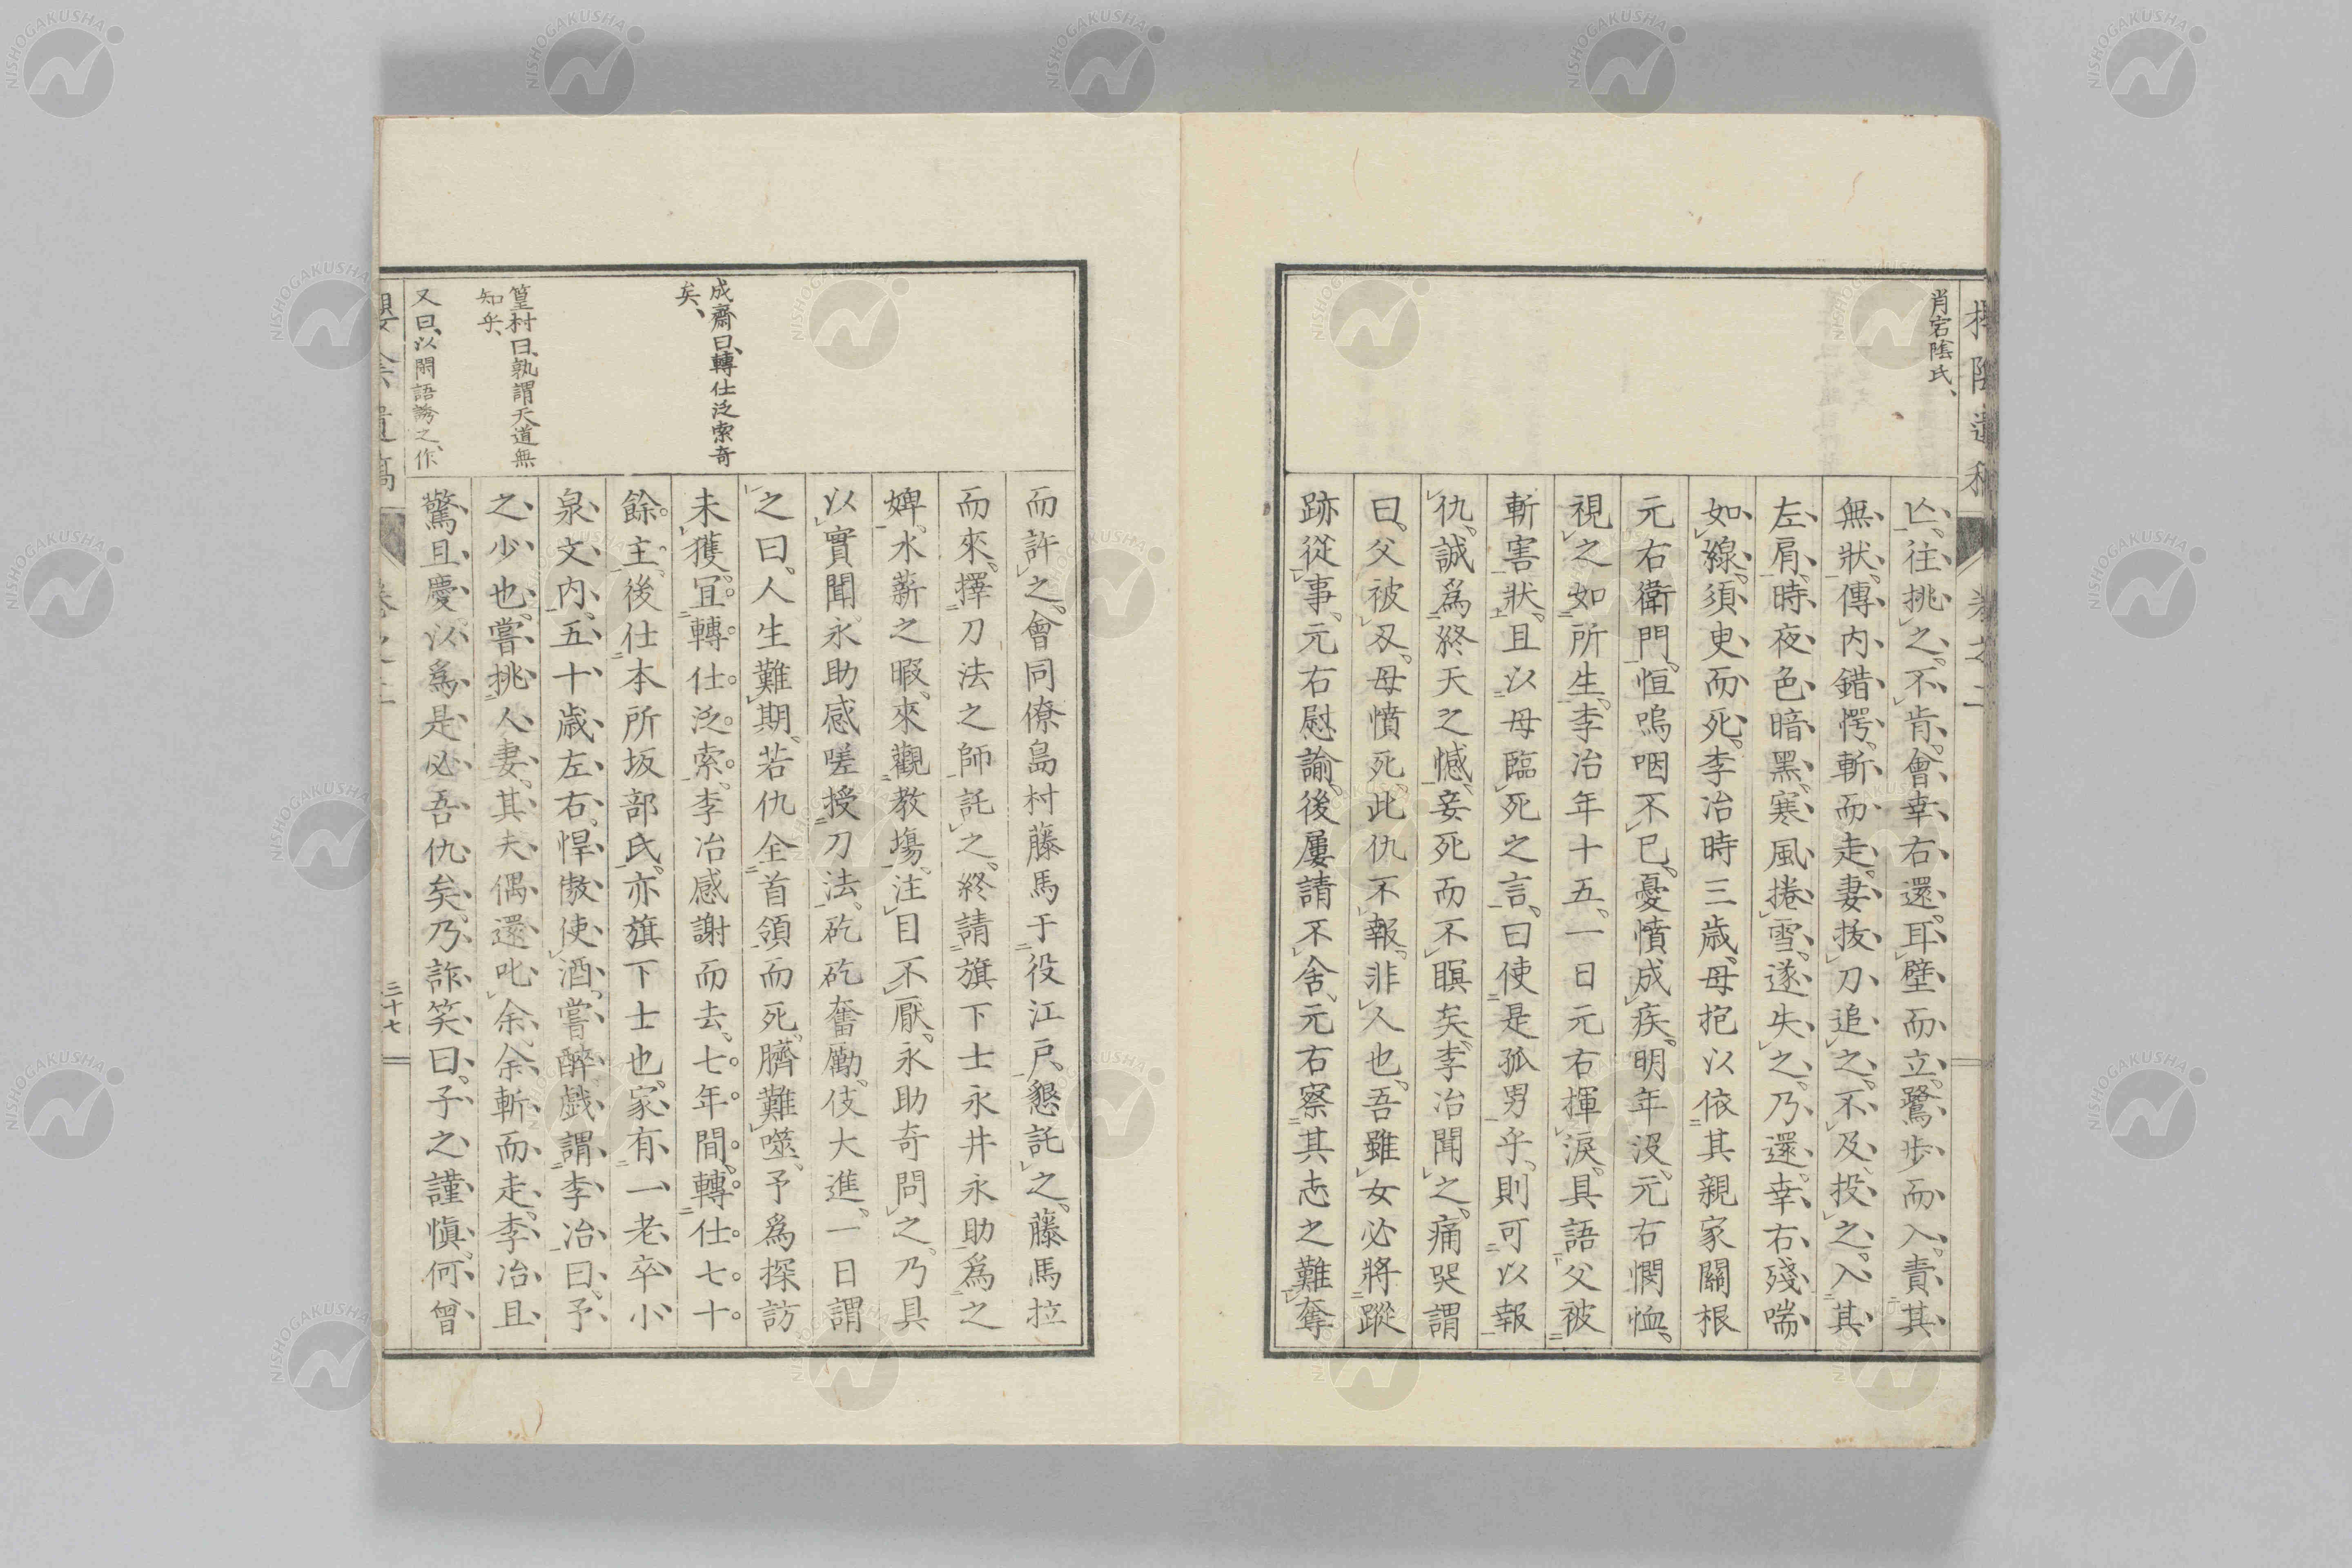 肖宕陰氏、
亾、往挑之。不肯。會幸右還。耳壁而立。鷺歩而入。責其
無狀。傳内錯愕。斬而走。妻拔刀追之。不及。投之。入其
左肩。時夜色暗黑、寒風捲雪。遂失之。乃還。幸右殘喘
如線、須臾而死。李冶時三歳。母抱以依其親家關根
元右衛門。恒嗚咽不已。憂憤成疾。明年沒。元右憫恤。
視之如所生。李冶年十五。一日元右揮淚。具語父被
斬害狀。且以母臨死之言。曰使是孤男乎、則可以報
仇。誠爲終天之憾。妾死而不瞑矣。李冶聞之。痛哭謂
曰。父被刄。母憤死。此仇不報。非人也。吾雖女必將蹤
跡從事。元右慰諭。後屢請不舍。元右察其志之難奪
而許之。會同僚島村藤馬于役江戸。懇託之。藤馬拉
而來。擇刀法之師託之。終請旗下士永井永助爲之
婢。水薪之暇、來觀教塲。注目不厭。永助奇問之。乃具
以實聞。永助感嗟授刀法。矻矻奮勵。伎大進。一日謂
之曰。人生難期。若仇全首領而死。臍難噬。予爲探訪
未獲。冝轉仕泛索。李冶感謝而去。七年間、轉仕七十
餘主。後仕本所坂部氏。亦旗下士也。家有一老卒小
泉文内。五十歳左右。悍傲使酒。嘗醉戲謂李冶曰。予
之少也。嘗挑人妻。其夫偶還叱余。余斬而走。李冶且
驚且慶以爲是必吾仇矣。乃詐笑曰。子之謹愼。何曾
成齋曰、轉仕泛索奇
矣、
篁村曰、孰謂天道無
知乎、
又曰、以閑語誇之、作
三十七